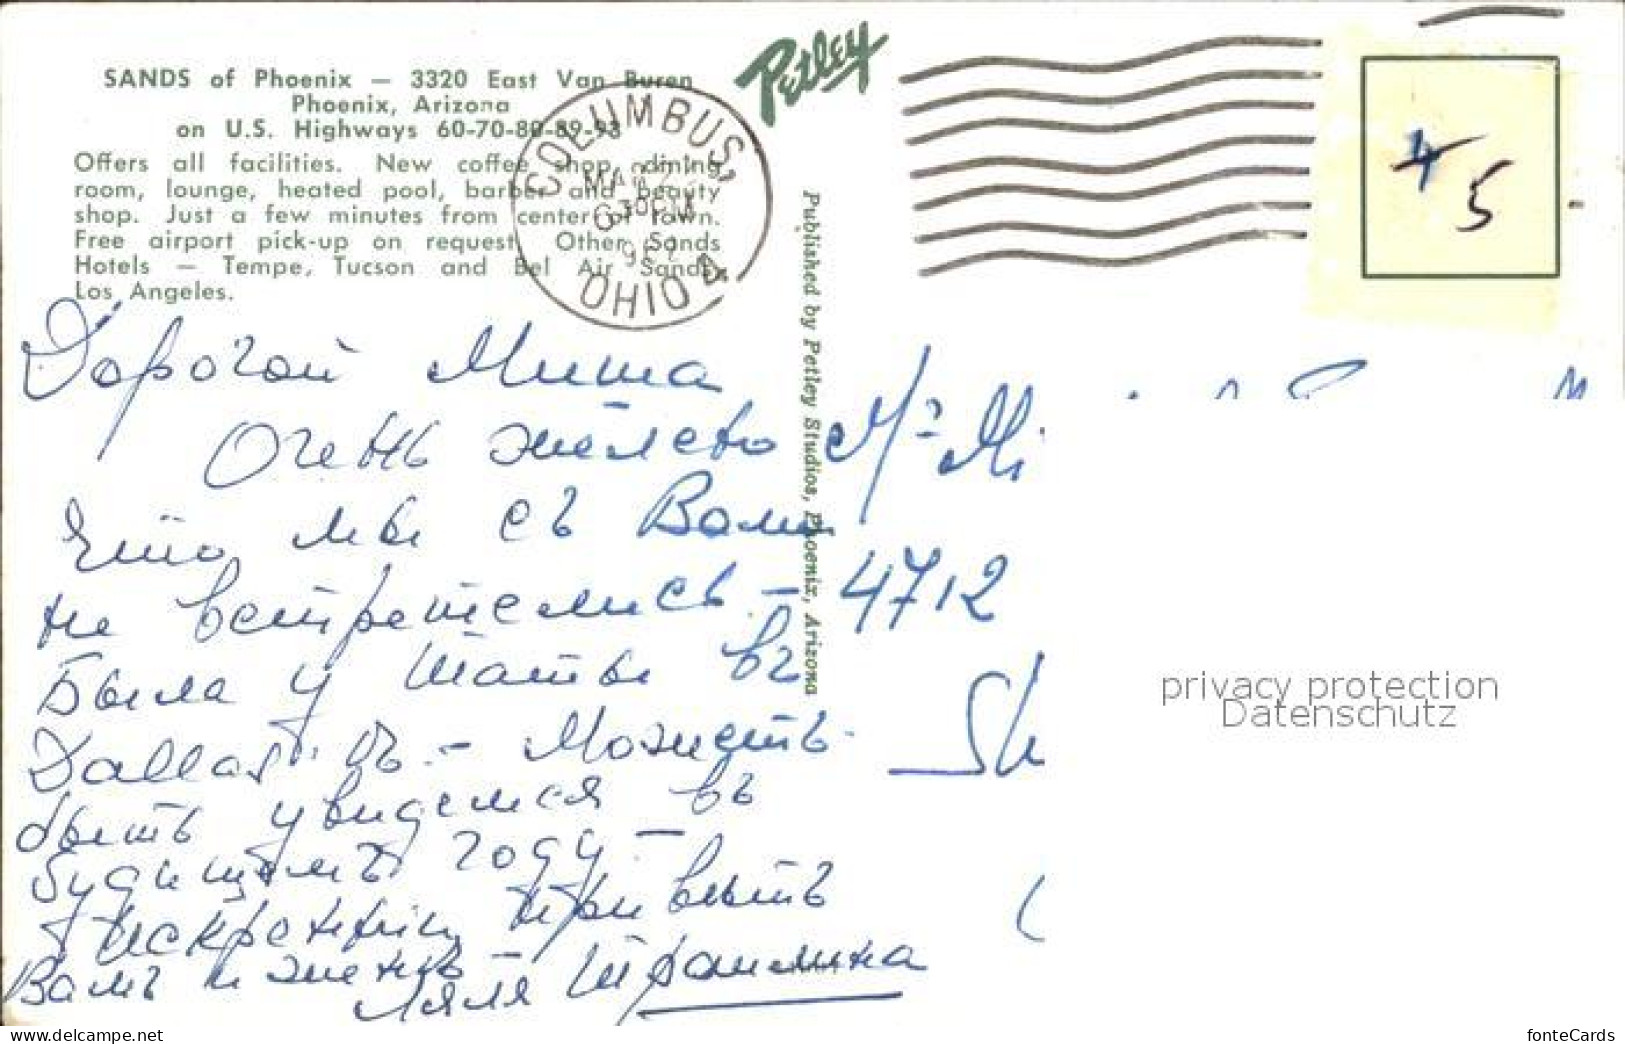 SANDS of Phoenix — 3320 East Van Buren
Phoenix, Arizona
on U.S. Highways 60-70-80-89-93
Offers all facilities. New coffee shop, dining
room, lounge, heated pool, barber and beauty
shop. Just a few minutes from center of town.
Free airport pick-up on request. Other Sands
Hotels — Tempe, Tucson and Bel Air Sands,
Los Angeles.
Petley
COLUMBUS,
OHIO
630PM
Published by Petley Studios, Phoenix, Arizona
4
5
Дорогой Миша
Очень жалею
что мы съ Вами
не встретились —
Была у Тати въ
Dallas'ѣ. — Можетъ
быть увидемся въ
будущемъ году —
Искренний привѣтъ
Вамъ и женѣ —
Ляля
4712
privacy protection
Datenschutz
www.delcampe.net
fonteCards